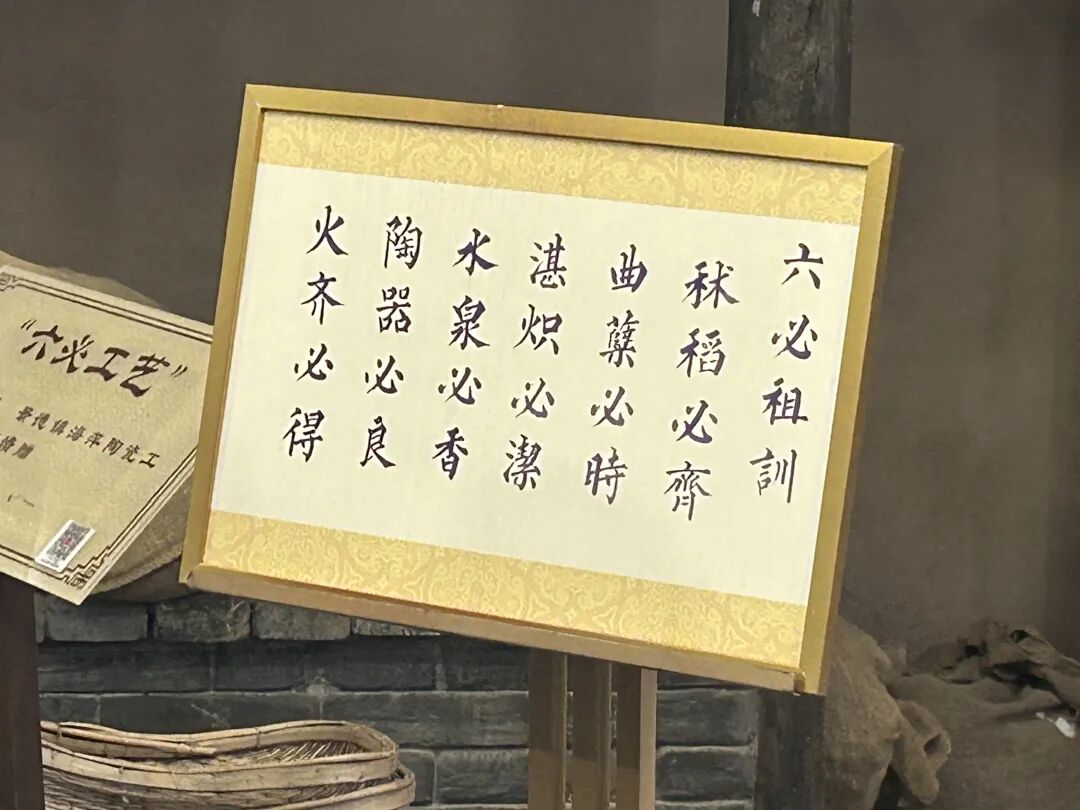 六必祖訓
秫稻必齊
曲糵必時
湛炽必潔
水泉必香
陶器必良
火齐必得
"六必工艺"
景德镇海萍陶瓷工